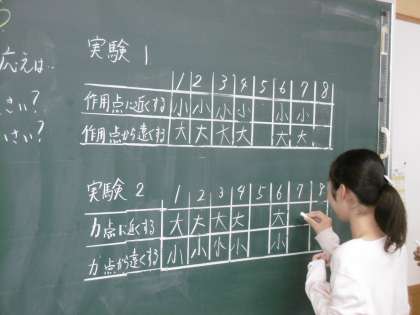 応えは.
さい?
いさい?
実験 1
1 2 3 4 5 6 7 8
作用点に近くする 小 小 小 小 小 小
作用点から遠くする 大 大 大 大 大 大
実験 2
1 2 3 4 5 6 7 8
力点に近くする 大 大 大 大 大
力点から遠くする 小 小 小 小 小